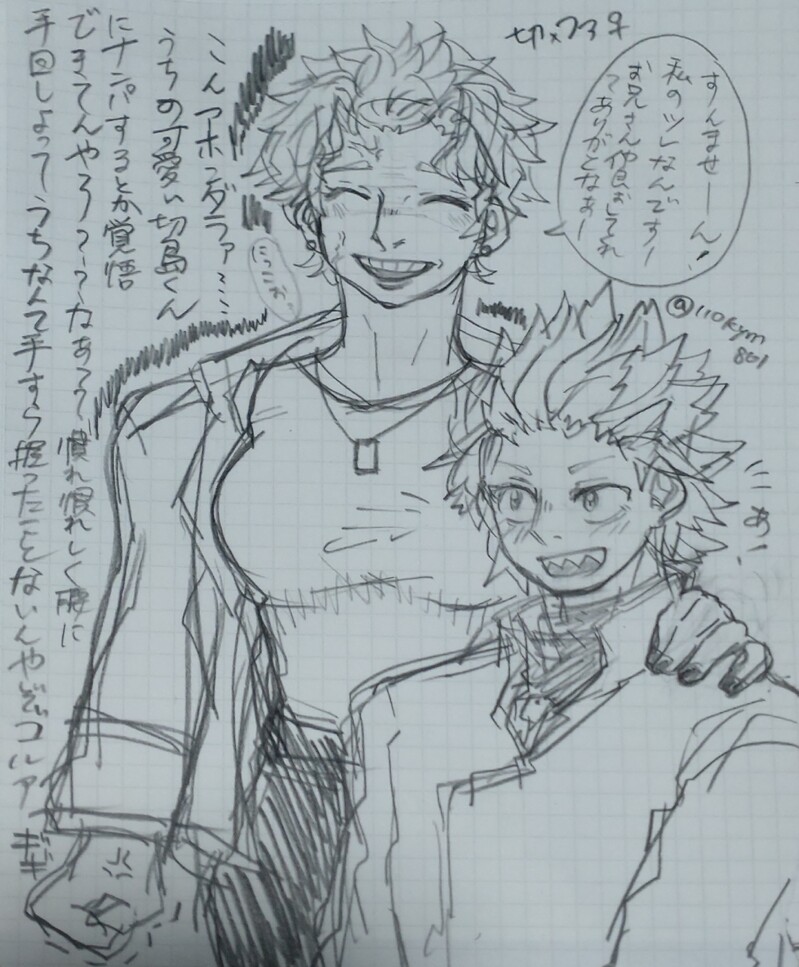 切×ファ♀
すんませーん!
私のツレなんですー
お兄さん仲良おしてれ
てありがとなぁー
@110kym
861
あ!
にっこぉ〜
こんアホンダラァ……
うちの可愛い切島くん
にナンパするとか覚悟
できてんやろ???なあ??慣れ慣れしく腰に
手回しよってうちなんて手すら握ったことないんやぞゴルァ
ギギ